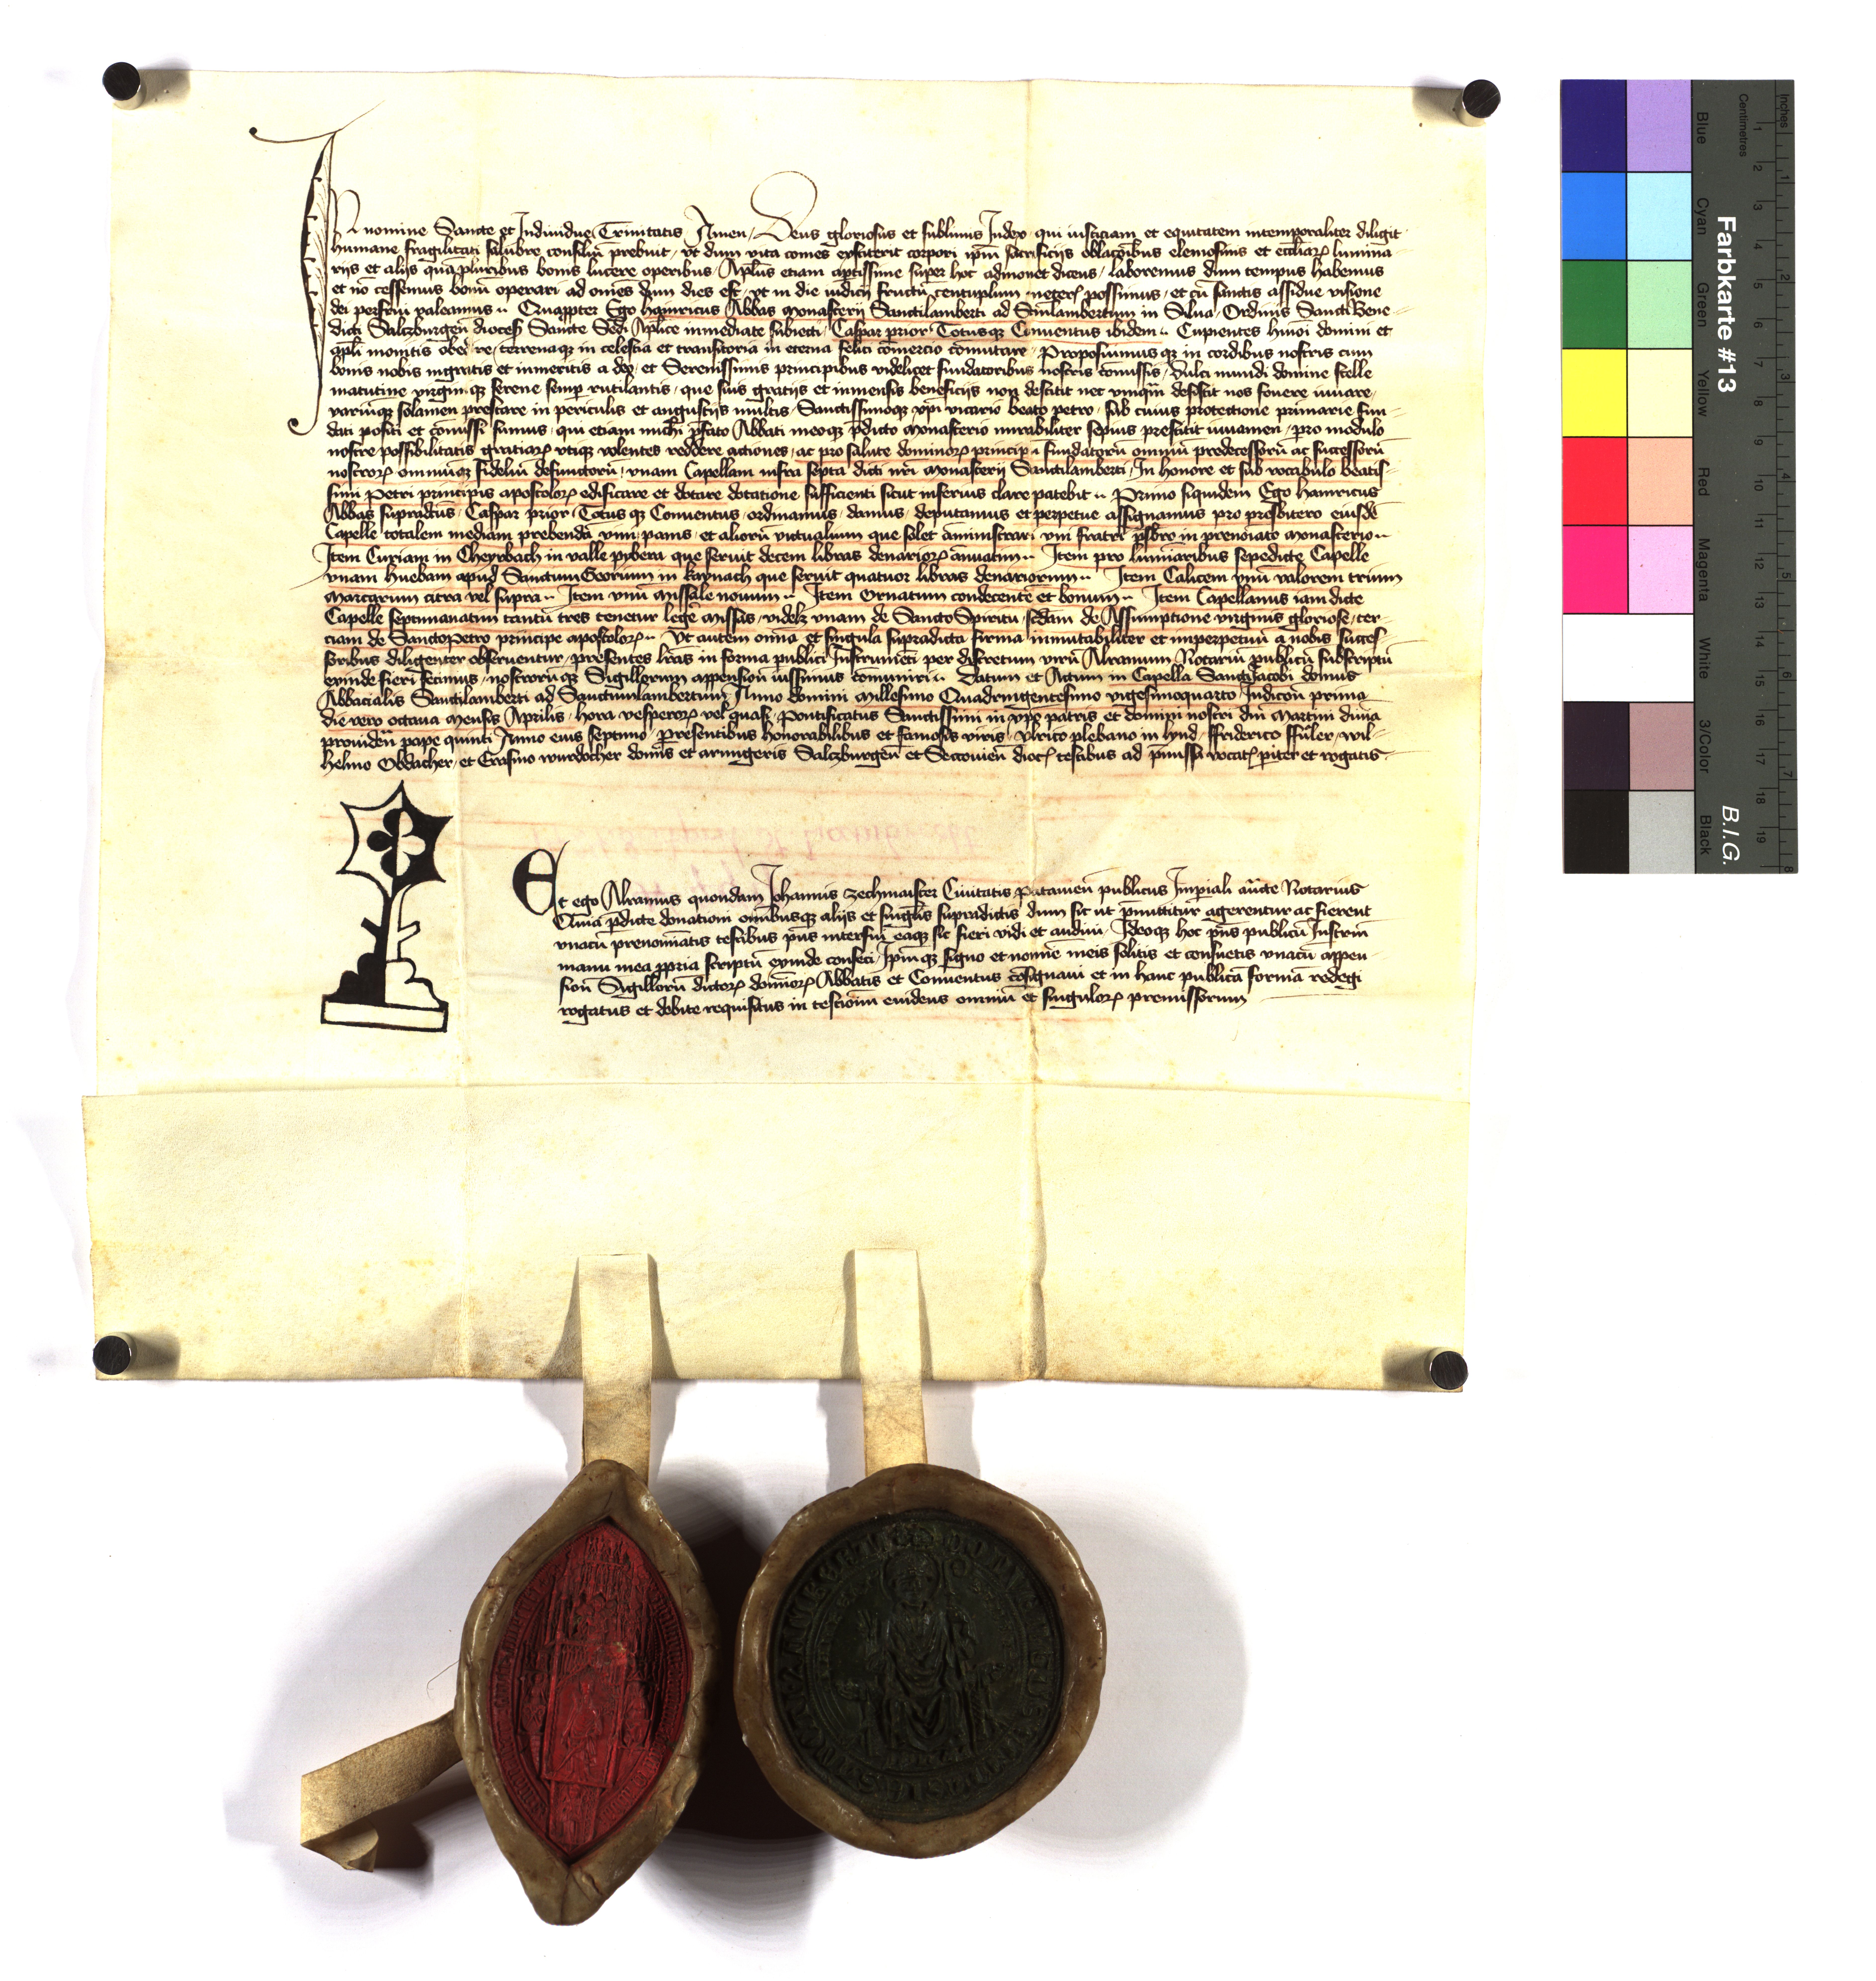 In nomine Sancte et Indiuidue Trinitatis Amen / Deus gloriosus et sublimis Iudex qui iusticiam et equitatem intemporaliter diligit
humane fragilitati salubre consiliū prebuit / vt dum vita comes extiterit corpori ip̄m sacrificijs oblacōībus elemosinis et eccl̄iaꝝ lumina-
rijs et alijs quāpluribus bonis lucere operibus / Apl̄us etiam aptissime super hoc admonet dicens / laboremus dum tempus habemus
et nō cessemus bonū operari ad om̄es dum dies est / vt in die iudicij fructū centuplum metere possimus / et cū sanctis assidue visione
dei perfrui valeamus Quappter Ego hainricus Abbas monasterij Sanctilamberti ad Stm̄lambertum in Silua / Ordinis Sancti Bene-
dicti Salczburgen̄ dioces̄ Sancte Sedi Aplice inmediate subiecti / Caspar prior Totusqꝫ Conuentus ibidem Cupientes hmoi domini et
apl̄i monitis obedire / terrenaqꝫ in celestia et transitoria in eterna felici cōmercio cōmutare / Proposuimus qꝫ in cordibus nostris cum
bonis nobis ingratis et inmeritis a deo / et Serenissimis principibus videlicet fundatoribus nostris cōmissis / Dulci mundi domine stelle
matutine virginiqꝫ serene semꝑ rutilantis / que suis gratijs et inmensis beneficijs non destitit nec vmqͣm desistit nos fouere iuuare /
variūqꝫ solamen prestare in periculis et angustijs multis / Sanctissimoqꝫ xp̄i vicario beato petro / sub cuius protectione primarie fun-
dati positi et cōmissi sumus / qui etiam michi p̄fato Abbati meoqꝫ p̄dicto monasterio mirabiliter sepius prestitit iuuamen / pro modulo
nostre possibilitatis gratiaꝝ vtiqꝫ volentes reddere actiones / ac pro salute dominoꝝ principū fundatorū omniū predecessorū ac successorū
nostroꝝ omniūqꝫ fidelū defunctorū / vnam Capellam infra septa dicti nr̄i monasterij Sanctilamberti / In honore et sub vocabulo beatis-
simi Petri principis apostoloꝝ edificare et dotare dotatione sufficienti sicut inferius clare patebit Primo siquidem Ego hainricus
Abbas supradictus / Caspar prior Totus qꝫ Conuentus / ordinamus / damus / deputamus et perpetue assignamus pro presbitero eiusdē
Capelle totalem mediam prebendā vini / panis / et aliorū victualium que solet aministrari vni fratri p̄sbro in prenotato monasterio
Item Curiam in Cheyrbach in valle pybera que seruit decem libras denarioꝝ añuatim Item pro luminaribus sepedicte Capelle
vnam huebam apud Sanctum Georium in kaynach que seruit quatuor libras denariorum Item Calicem vnū valorem trium
marcarum citra vel supra Item vnū missale nouum Item Ornatum condecentē et bonum Item Capellanus iam dicte
Capelle septimanatim tantū tres tenetur legē missas / videlꝫ vnam de Sancto Spiritu / scd̄am de Assumptione virginis gloriose / ter-
ciam de Sancto Petro principe apostoloꝝ Vt autem omia et singula supradicta firma inmutabiliter et inperpetuū a nobis succes-
soribus diligenter obseruentur / presentes lr̄as in forma publici Instrumēti per discretum virū Alramum Notariū publicū subscriptū
exinde fieri fecimus / nostrorūqꝫ Sigillorum appension̄ iussimus cōmuniri Datum et Actum in Capella Sanctijacobi domus
Abbacialis Sanctilamberti ad Sanctumlambertum Anno domini Millesimo Quadringentesimo vigesimoquarto / Indicōn prima
die vero octaua mensis Aprilis / hora vesperoꝝ vel quasi / Pontificatus Sanctissimi in xp̄o patris et domini nostri dn̄i Martini diuia
prouiden̄ pape quinti Anno eius septimo / Presentibus honorabilibus et famosis viris / Vlrico plebano in lynd / ffriderico ffūler / wil-
helmo Obdacher / et Erasmo wurdocher domis et armigeris Salczburgen̄ et Seccouien̄ dioc̄ testibus ad p̄missa vocat̄ p̄iter et rogatis
Et ego Alramus quondam Johannis Zechmaister Ciuitatis patauien̄ publicus Imp̄iali aūcte Notarius
Quia p̄dicte donationi omībusqꝫ alijs et singl̄is supradictis dum sic ut p̄mittitur agerentur ac fierent
vnacū prenomīatis testibus pn̄s interfui eaqꝫ sic fieri vidi et audiui / Ideoqꝫ hoc pn̄s publicū Instrm̄
manu mea ꝓpria scriptū exinde confeci / Ip̄m qꝫ signo et nomīe meis solitis et consuetis vnacū appen-
sion̄ Sigillorū dictoꝝ dominoꝝ Abbatis et Conuentus cōsignaui et in hanc publicā formā redegi
rogatus et debite requisitus in testioīm euidens omniū et singuloꝝ premissorum
Farbkarte #13
B.I.G.
Inches
Centimetres
1 2 3 4 5 6 7 8
1 2 3 4 5 6 7 8 9 10 11 12 13 14 15 16 17 18 19
Blue
Cyan
Green
Yellow
Red
Magenta
White
3/Color
Black